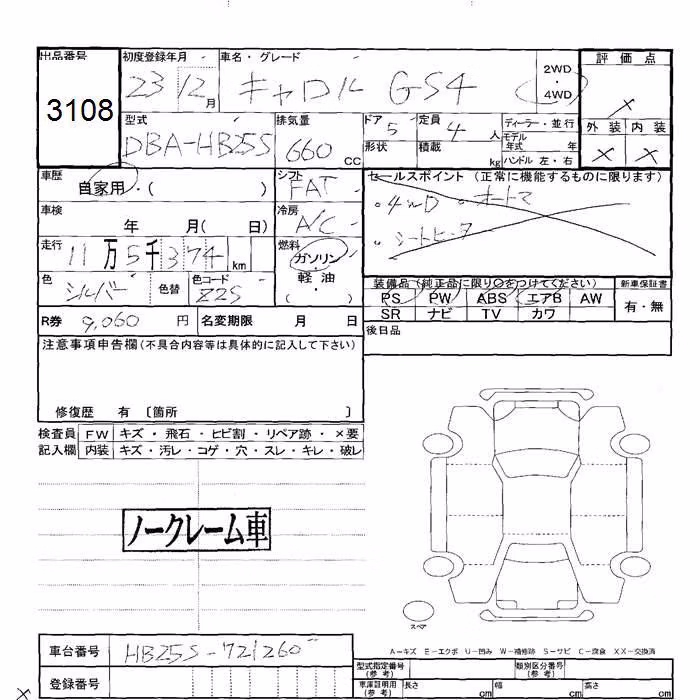 出品番号 3108
初度登録年月 23 12月
車名・グレード キャロル GS4
2WD
4WD
評価点
×
外装 内装
× ×
型式 DBA-HB25S
排気量 660 CC
ドア 5
定員 4 人
ディーラー・並行
形状
積載 kg
モデル年式 年
ハンドル 左・右
車歴 自家用・( )
シフト FAT
車検 年 月( 日)
冷房 A/C
セールスポイント (正常に機能するものに限ります)
。4WD 。オートマ
。シートヒーター
走行 11万5千374km
燃料 ガソリン・軽油・( )
色 シルバー 色替
色コード Z2S
装備品 (純正品に限り○をつけてください) 新車保証書
PS PW ABS エアB AW 有・無
SR ナビ TV カワ
R券 9,060 円 名変期限 月 日
後日品
注意事項申告欄(不具合内容等は具体的に記入して下さい)
修復歴 有 〔箇所 〕
検査員 FW キズ・飛石・ヒビ割・リペア跡・×要
記入欄 内装 キズ・汚レ・コゲ・穴・スレ・キレ・破レ
ノークレーム車
スペア
A-キズ E-エクボ U-凹み W-補修跡 S-サビ C-腐食 XX-交換済
車台番号 HB25S-721260
登録番号
型式指定番号(参考) 類別区分番号(参考)
車庫証明用(参考) 長さ cm 幅 cm 高さ cm
×